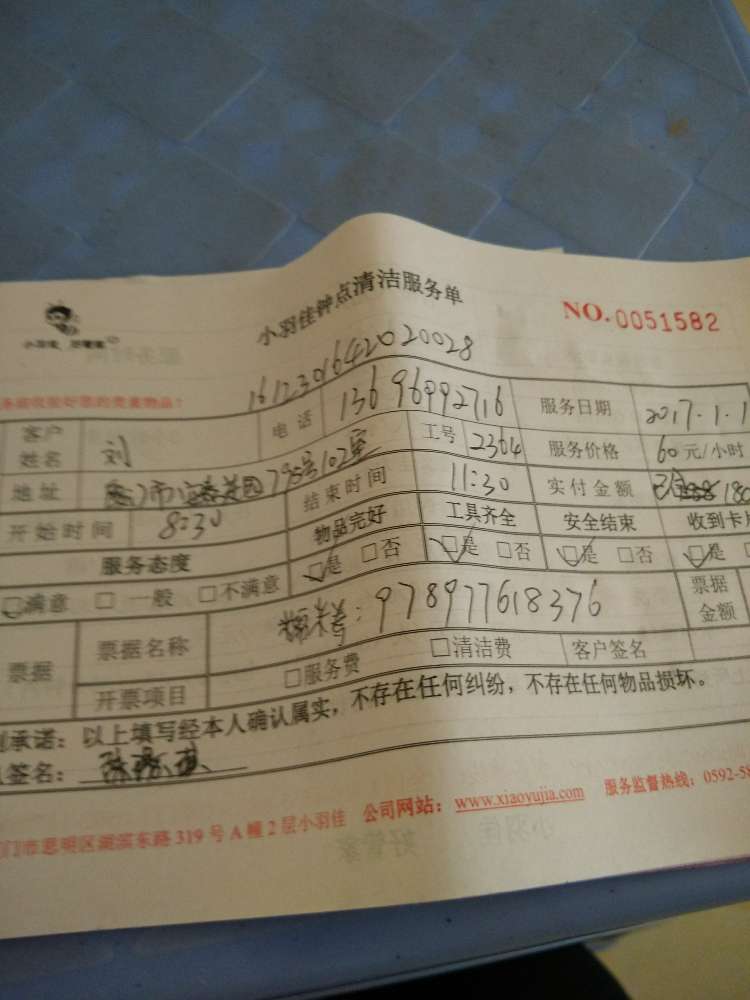 小羽佳钟点清洁服务单
NO.0051582
小羽佳
1612301642020028
客户姓名 刘 电话 13696992716 服务日期 2017.1.1
地址 795号102室 工号 2364 服务价格 60元/小时
开始时间 8:30 结束时间 11:30 实付金额 180
服务态度 物品完好 工具齐全 安全结束 收到卡
满意 一般 不满意 是 否 是 否 是 否 是
票据 票据名称 978977618376 票据金额
开票项目 服务费 清洁费 客户签名
承诺：以上填写经本人确认属实，不存在任何纠纷，不存在任何物品损坏。
签名：
门市思明区湖滨东路319号A幢2层小羽佳 公司网站：www.xiaoyujia.com 服务监督热线：0592-58